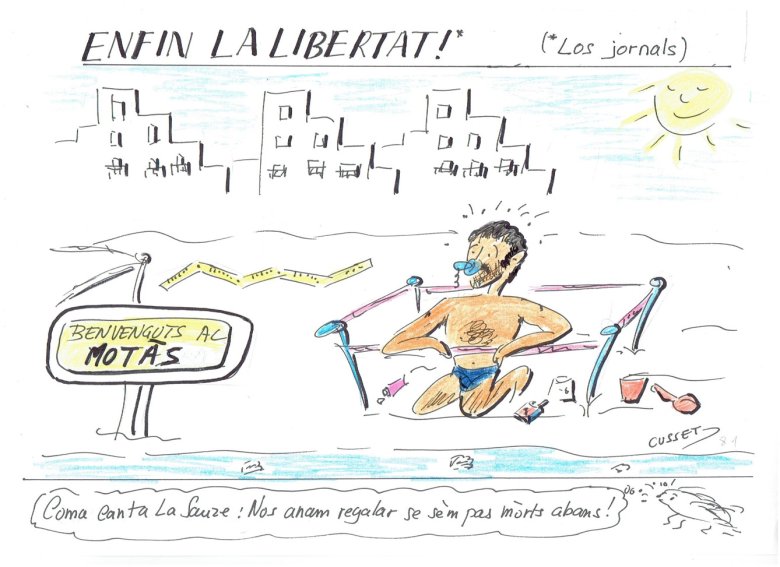 ENFIN LA LIBERTAT!*
(*Los jornals)
BENVENGUTS AL
MOTÀS
CUSSET
Coma canta La Sauze : Nos anam regalar se sèm pas mòrts abans !